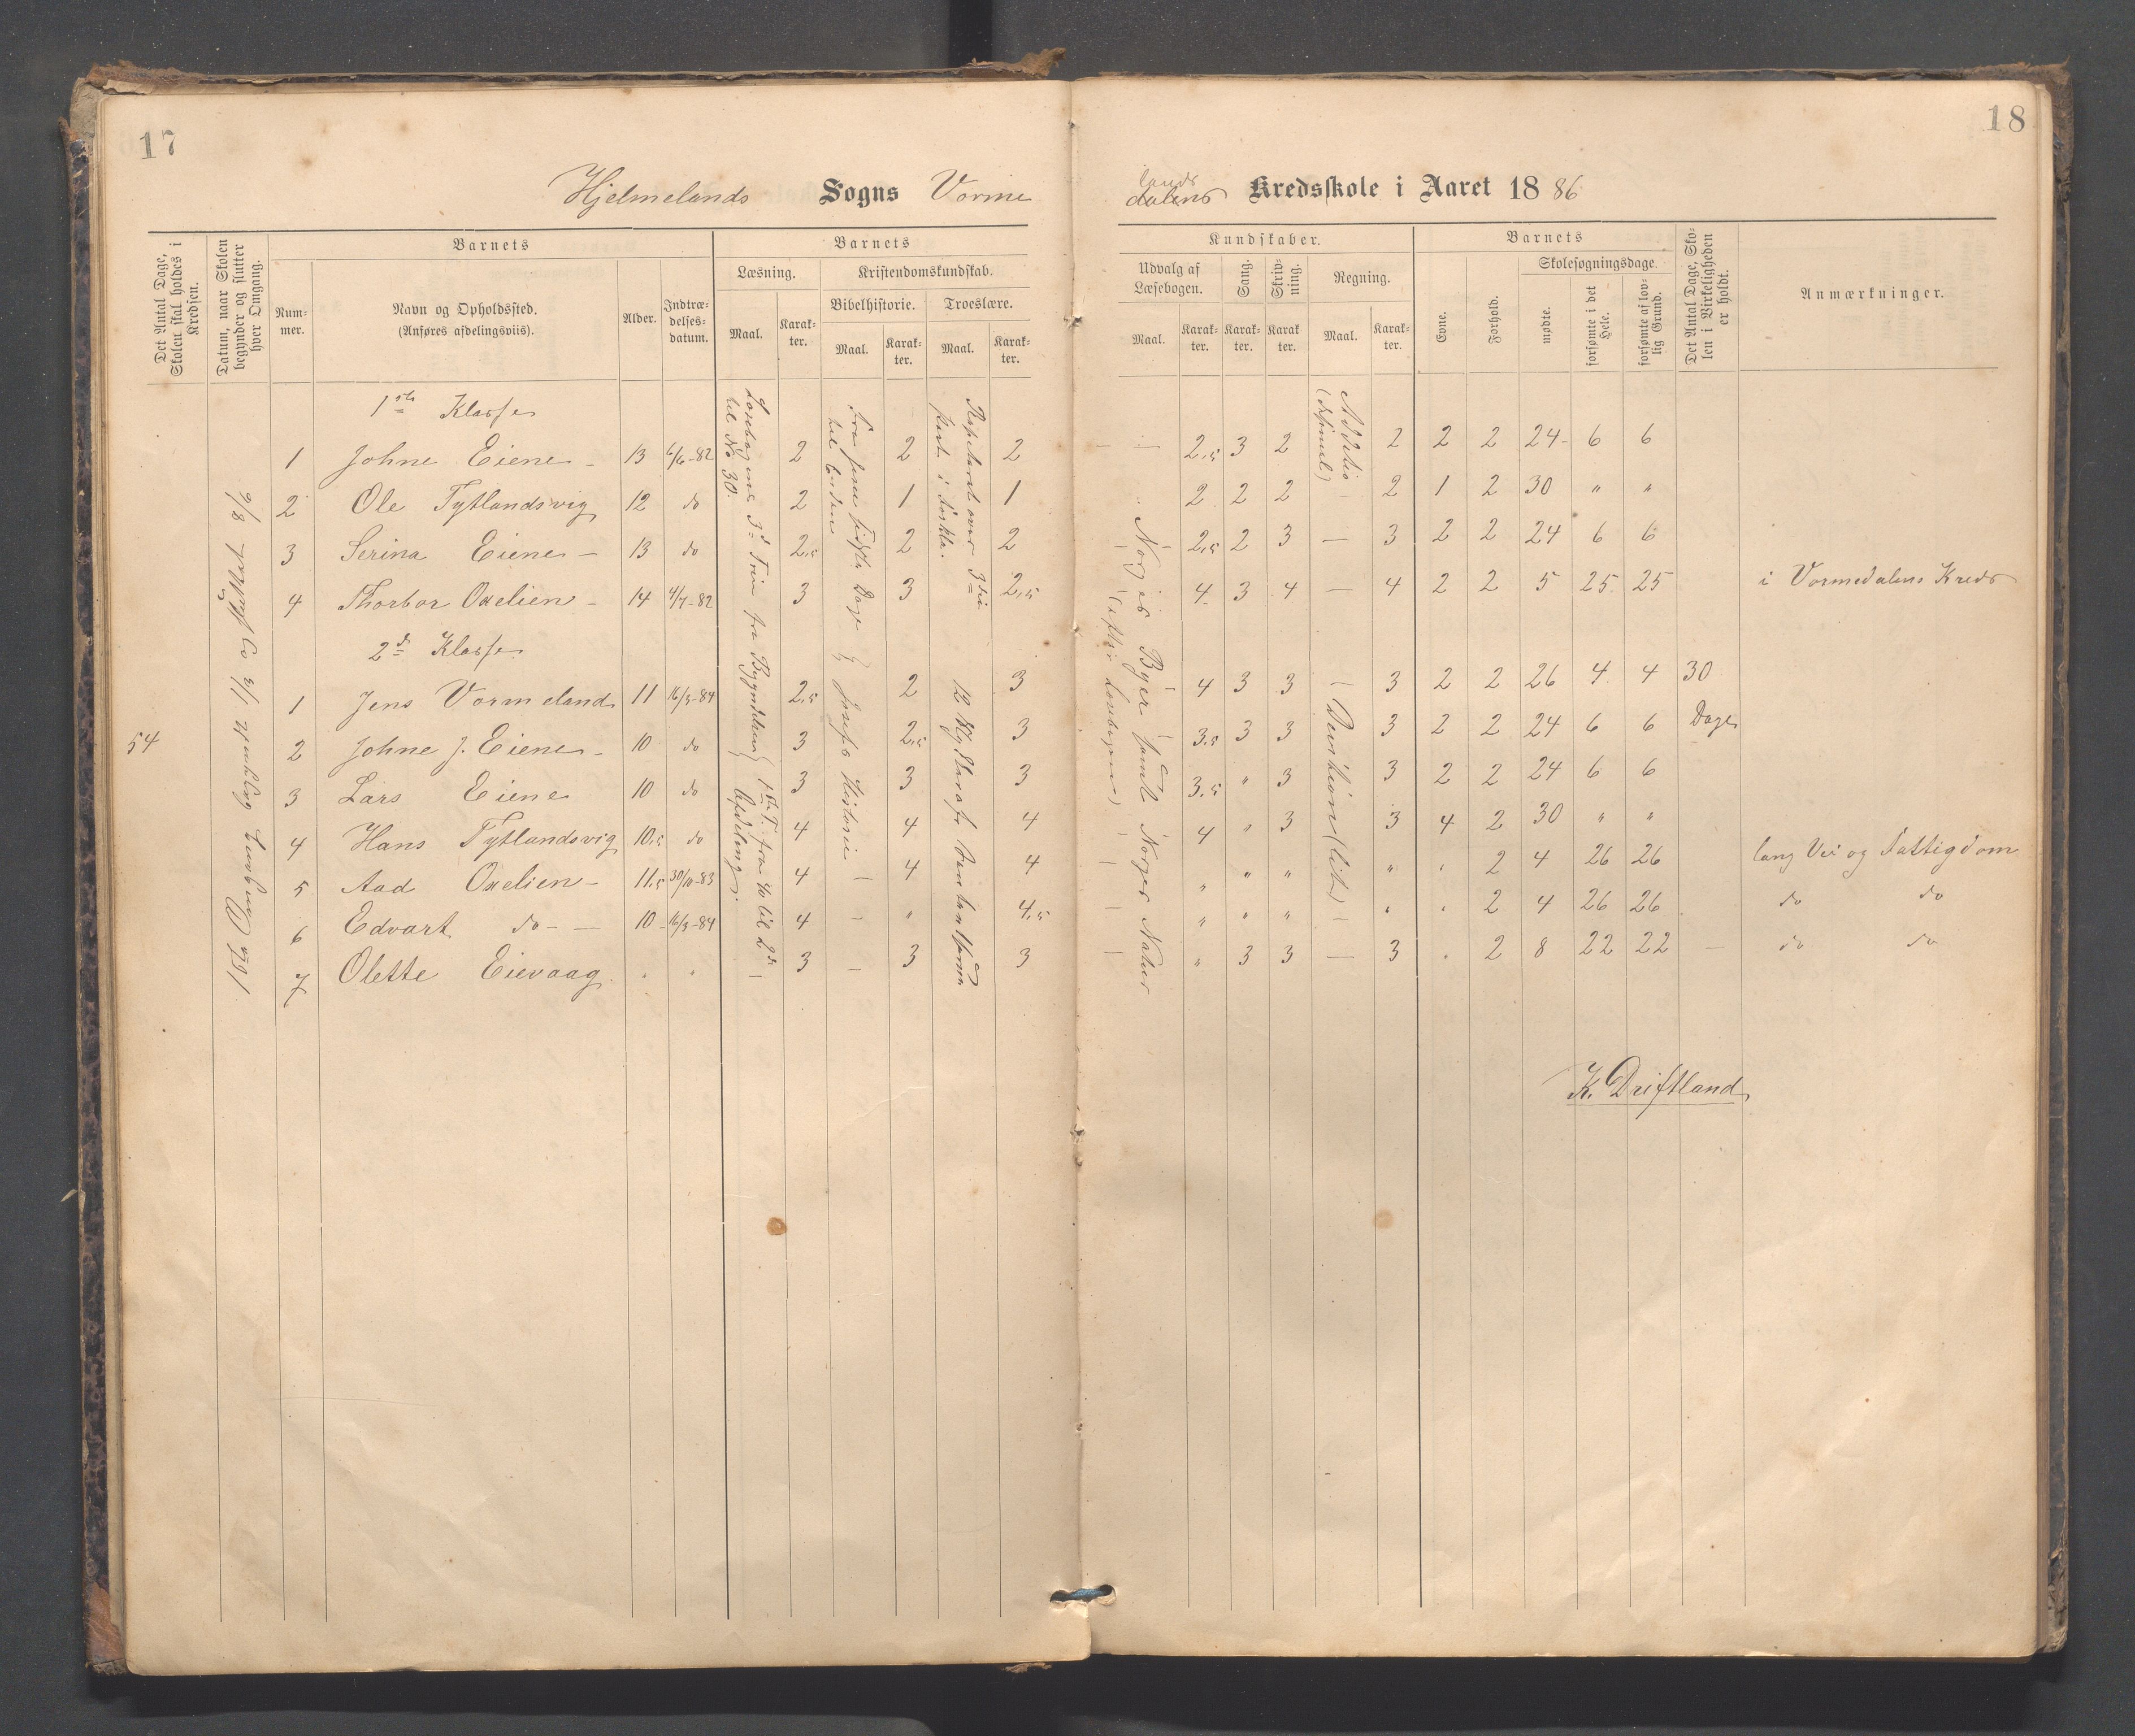 17
18
Hjelmelands Sogns Vorme
lands
dalens Kredsskole i Aaret 1886
Det Antal Dage, Skolen skal holdes i Kredsen.
Datum, naar Skolen begynder og slutter hver Omgang.
Barnets
Nummer.
Navn og Opholdssted.
(Anføres afdelingsviis).
Alder.
Indtrædelsesdatum.
Barnets
Læsning.
Maal.
Karakter.
Kristendomskundskab.
Bibelhistorie.
Maal.
Karakter.
Troeslære.
Maal.
Karakter.
Kundskaber.
Udvalg af Læsebogen.
Maal.
Karakter.
Sang.
Karakter.
Skrivning.
Karakter.
Regning.
Maal.
Karakter.
Barnets
Evne.
Forhold.
Skolesøgningsdage.
mødte.
forsømte i det Hele.
forsømte af lovlig Grund.
Det Antal Dage, Skolen i Virkeligheden er holdt.
Anmærkninger.
1ste Klasse
1 Johne Eiene - 13 6/6-82 2 2 2 - - 2,5 3 2 2 2 2 24 6 6
2 Ole Tytlandsvig 12 do 2 1 1 " 2 2 2 2 1 2 30 " "
3 Serina Eiene - 13 do 2,5 2 2 - 2,5 2 3 - 3 2 2 24 6 6
4 Thorbor Oxelien - 14 4/7-82 3 3 2,5 4 3 4 - 4 2 2 5 25 25 i Vormedalens Kreds
2d Klasse
1 Jens Vormeland 11 16/3-84 2,5 2 3 4 3 3 3 2 2 26 4 4 30
54 2 Johne J. Eiene - 10 do 3 2,5 3 3,5 3 3 3 2 2 24 6 6 Dage
3 Lars Eiene 10 do 3 3 3 3,5 " 3 3 2 2 24 6 6
4 Hans Tytlandsvig 10,5 do 4 4 4 4 " 3 3 4 2 30 " "
5 Aad Oxelien - 11,5 30/10-83 4 4 4 " " " " " 2 4 26 26 lang Vei og Fattigdom
6 Edvart do - - 10 16/3-84 4 " 4,5 " " " " " 2 4 26 26 do do
7 Olette Eievaag " " 3 3 3 " 3 3 3 " 2 8 22 22 - do do
Læsebogens 3d Trin fra Bygninden
til No 30.
1ste T. fra 40 til 2d
Afdeling
til Enden
Josefs Historie
Norges Byer samt Norges Natur
(efter Læsebogen)
Additio
Divition (lidt)
K. Driftland